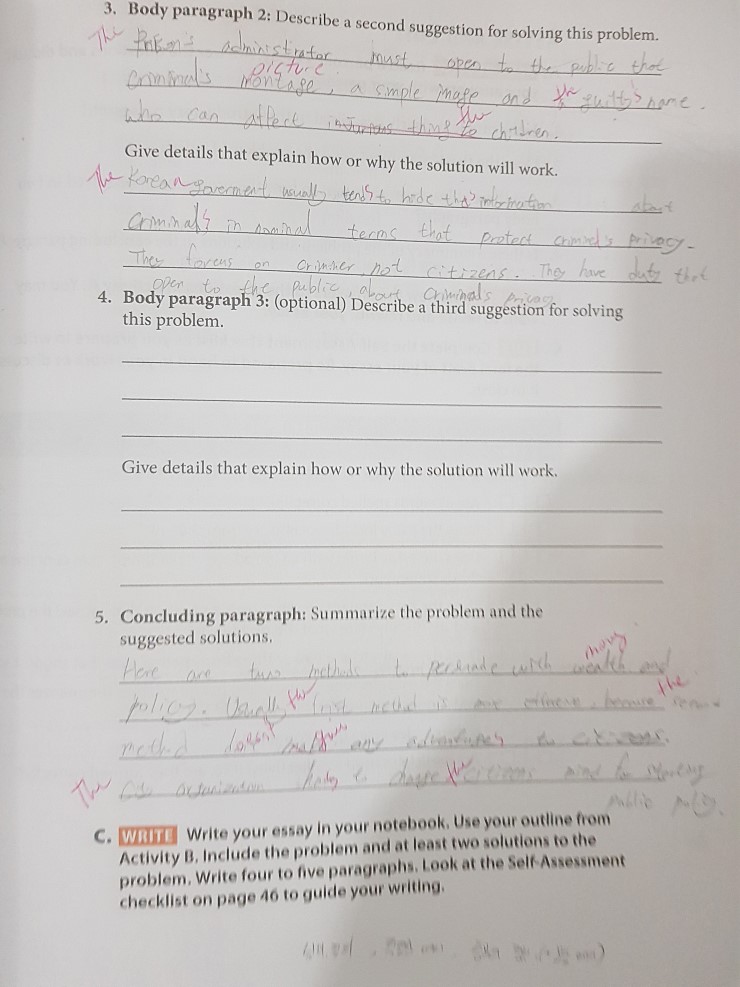 3. Body paragraph 2: Describe a second suggestion for solving this problem.
The Prison's administrator must open to the public that
picture
Criminal's montage, a simple image and the guilty's name.
who can affect injurious thing to the children.
Give details that explain how or why the solution will work.
The Korean goverment usually tends to hide the information about
Criminals in nominal terms that protect criminal's privacy.
They forcus on criminer not citizens. They have duty that
open to the public about criminals privacy
4. Body paragraph 3: (optional) Describe a third suggestion for solving
this problem.
Give details that explain how or why the solution will work.
5. Concluding paragraph: Summarize the problem and the
suggested solutions.
money
Here are two methods to persuade with wealth and
policy. Usually the first method is because the
method doesn't any to citizens.
The organization to change the citizens mind for
public policy.
C. WRITE Write your essay in your notebook. Use your outline from
Activity B. Include the problem and at least two solutions to the
problem. Write four to five paragraphs. Look at the Self-Assessment
checklist on page 46 to guide your writing.